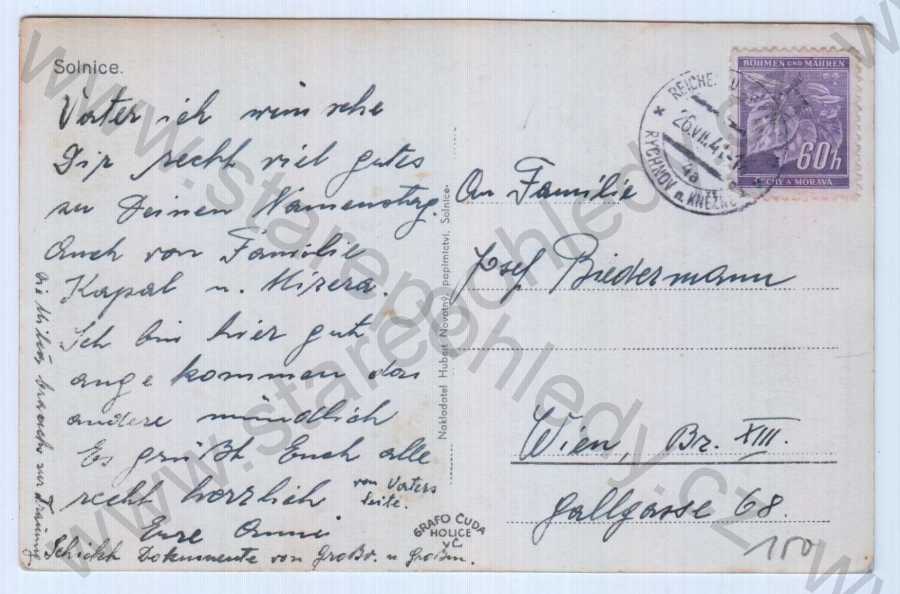 Solnice.
Vater ich wünsche
Dir recht viel gutes
zu Deinen Namenstag.
Auch von Familie
Kapal u. Mizera.
Ich bin hier gut
ange kommen das
andere mündlich
Es grüßt Euch alle
recht herzlich
Eure Anni
von Vaters
Seite.
Schickt Dokumente von Großv. u Großm.
brauche zur Trauung
Nakladatel Hubert Novotný, papírnictví, Solnice.
GRAFO ČUDA
HOLICE
v Č
BÖHMEN UND MÄHREN
60h
ČECHY A MORAVA
26.VII.41
RYCHNOV n. KNĚŽNOU
An Familie
Josef Biedermann
Wien, Bz. XIII.
Gallgasse 68.
150
www.starepohledy.cz